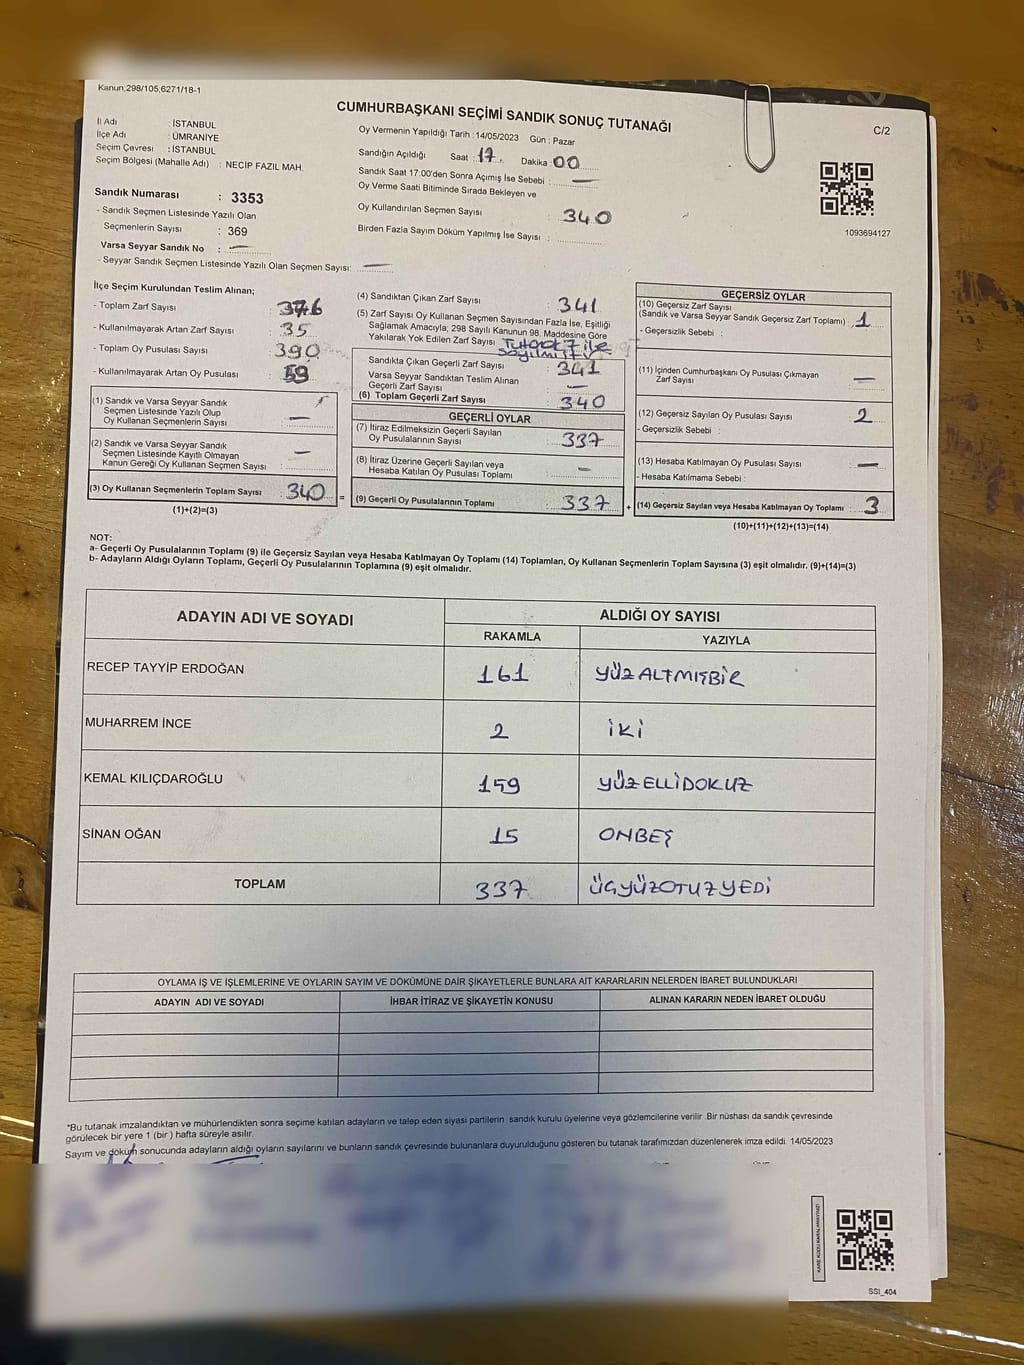 Kanun;298/105,6271/18-1
CUMHURBAŞKANI SEÇİMİ SANDIK SONUÇ TUTANAĞI
C/2
İl Adı : İSTANBUL
İlçe Adı : ÜMRANİYE
Seçim Çevresi : İSTANBUL
Seçim Bölgesi (Mahalle Adı) : NECİP FAZIL MAH.
Sandık Numarası : 3353
- Sandık Seçmen Listesinde Yazılı Olan
Seçmenlerin Sayısı : 369
Varsa Seyyar Sandık No : —
- Seyyar Sandık Seçmen Listesinde Yazılı Olan Seçmen Sayısı: —
Oy Vermenin Yapıldığı Tarih : 14/05/2023 Gün : Pazar
Sandığın Açıldığı Saat : 17 Dakika : 00
Sandık Saat 17:00'den Sonra Açımış İse Sebebi : —
Oy Verme Saati Bitiminde Sırada Bekleyen ve
Oy Kullandırılan Seçmen Sayısı : 340
Birden Fazla Sayım Döküm Yapılmış İse Sayısı :
1093694127
İlçe Seçim Kurulundan Teslim Alınan;
- Toplam Zarf Sayısı : 376
- Kullanılmayarak Artan Zarf Sayısı : 35
- Toplam Oy Pusulası Sayısı : 390
- Kullanılmayarak Artan Oy Pusulası : 59
(1) Sandık ve Varsa Seyyar Sandık
Seçmen Listesinde Yazılı Olup
Oy Kullanan Seçmenlerin Sayısı : —
(2) Sandık ve Varsa Seyyar Sandık
Seçmen Listesinde Kayıtlı Olmayan
Kanun Gereği Oy Kullanan Seçmen Sayısı : —
(3) Oy Kullanan Seçmenlerin Toplam Sayısı : 340
(1)+(2)=(3)
(4) Sandıktan Çıkan Zarf Sayısı : 341
(5) Zarf Sayısı Oy Kullanan Seçmen Sayısından Fazla İse, Eşitliği
Sağlamak Amacıyla; 298 Sayılı Kanunun 98. Maddesine Göre
Yakılarak Yok Edilen Zarf Sayısı
Sandıkta Çıkan Geçerli Zarf Sayısı : 341
Varsa Seyyar Sandıktan Teslim Alınan
Geçerli Zarf Sayısı : —
(6) Toplam Geçerli Zarf Sayısı : 340
=
GEÇERLİ OYLAR
(7) İtiraz Edilmeksizin Geçerli Sayılan
Oy Pusulalarının Sayısı : 337
(8) İtiraz Üzerine Geçerli Sayılan veya
Hesaba Katılan Oy Pusulası Toplamı : —
(9) Geçerli Oy Pusulalarının Toplamı : 337
+
GEÇERSİZ OYLAR
(10) Geçersiz Zarf Sayısı
(Sandık ve Varsa Seyyar Sandık Geçersiz Zarf Toplamı) : 1
- Geçersizlik Sebebi :
(11) İçinden Cumhurbaşkanı Oy Pusulası Çıkmayan
Zarf Sayısı : —
(12) Geçersiz Sayılan Oy Pusulası Sayısı : 2
- Geçersizlik Sebebi :
(13) Hesaba Katılmayan Oy Pusulası Sayısı : —
- Hesaba Katılmama Sebebi :
(14) Geçersiz Sayılan veya Hesaba Katılmayan Oy Toplamı : 3
(10)+(11)+(12)+(13)=(14)
NOT:
a- Geçerli Oy Pusulalarının Toplamı (9) ile Geçersiz Sayılan veya Hesaba Katılmayan Oy Toplamı (14) Toplamları, Oy Kullanan Seçmenlerin Toplam Sayısına (3) eşit olmalıdır. (9)+(14)=(3)
b- Adayların Aldığı Oyların Toplamı, Geçerli Oy Pusulalarının Toplamına (9) eşit olmalıdır.
ADAYIN ADI VE SOYADI ALDIĞI OY SAYISI
RAKAMLA YAZIYLA
RECEP TAYYİP ERDOĞAN 161 YÜZALTMIŞBİR
MUHARREM İNCE 2 İKİ
KEMAL KILIÇDAROĞLU 159 YÜZELLİDOKUZ
SİNAN OĞAN 15 ONBEŞ
TOPLAM 337 ÜÇYÜZOTUZYEDİ
OYLAMA İŞ VE İŞLEMLERİNE VE OYLARIN SAYIM VE DÖKÜMÜNE DAİR ŞİKAYETLERLE BUNLARA AİT KARARLARIN NELERDEN İBARET BULUNDUKLARI
ADAYIN ADI VE SOYADI İHBAR İTİRAZ VE ŞİKAYETİN KONUSU ALINAN KARARIN NEDEN İBARET OLDUĞU
*Bu tutanak imzalandıktan ve mühürlendikten sonra seçime katılan adayların ve talep eden siyasi partilerin sandık kurulu üyelerine veya gözlemcilerine verilir. Bir nüshası da sandık çevresinde
görülecek bir yere 1 (bir) hafta süreyle asılır.
Sayım ve döküm sonucunda adayların aldığı oyların sayılarını ve bunların sandık çevresinde bulunanlara duyurulduğunu gösteren bu tutanak tarafımızdan düzenlenerek imza edildi. 14/05/2023
SSİ_404